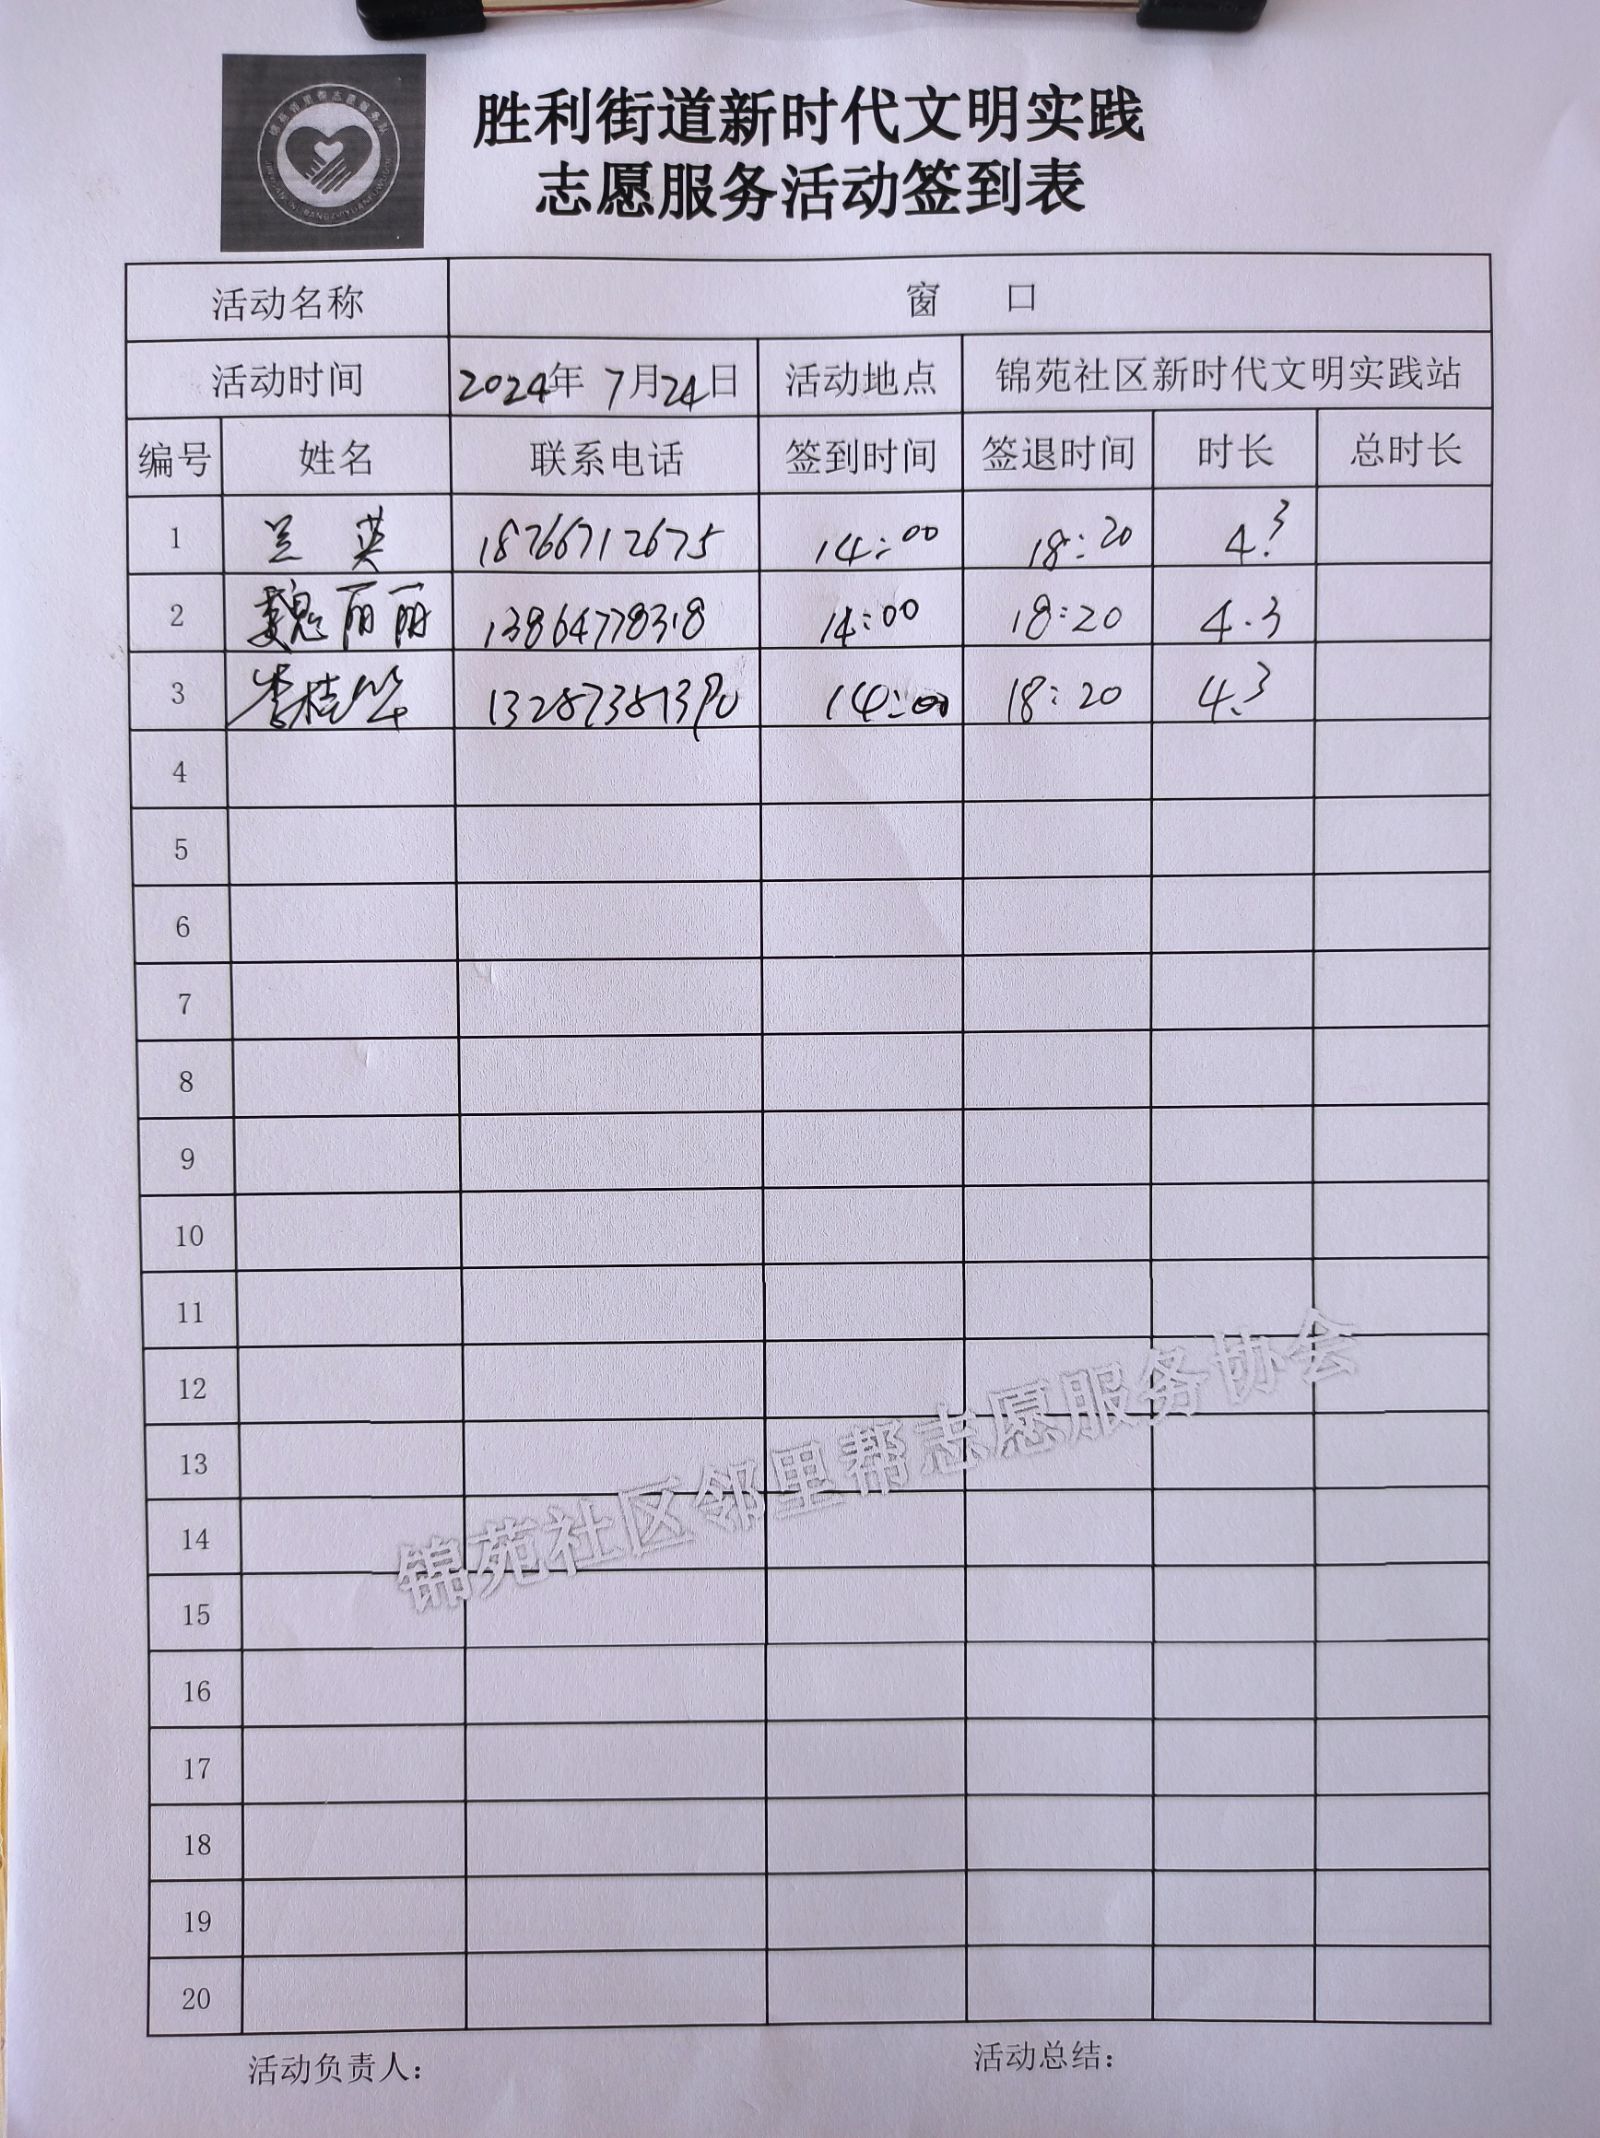 胜利街道新时代文明实践
志愿服务活动签到表
活动名称 窗 口
活动时间 2024年 7月24日 活动地点 锦苑社区新时代文明实践站
编号 姓名 联系电话 签到时间 签退时间 时长 总时长
1 兰英 18766712675 14:00 18:20 4.3
2 魏丽丽 13864778318 14:00 18:20 4.3
3 李桂华 13287381390 14:00 18:20 4.3
4
5
6
7
8
9
10
11
12
13
14
15
16
17
18
19
20
锦苑社区邻里帮志愿服务协会
活动负责人： 活动总结：